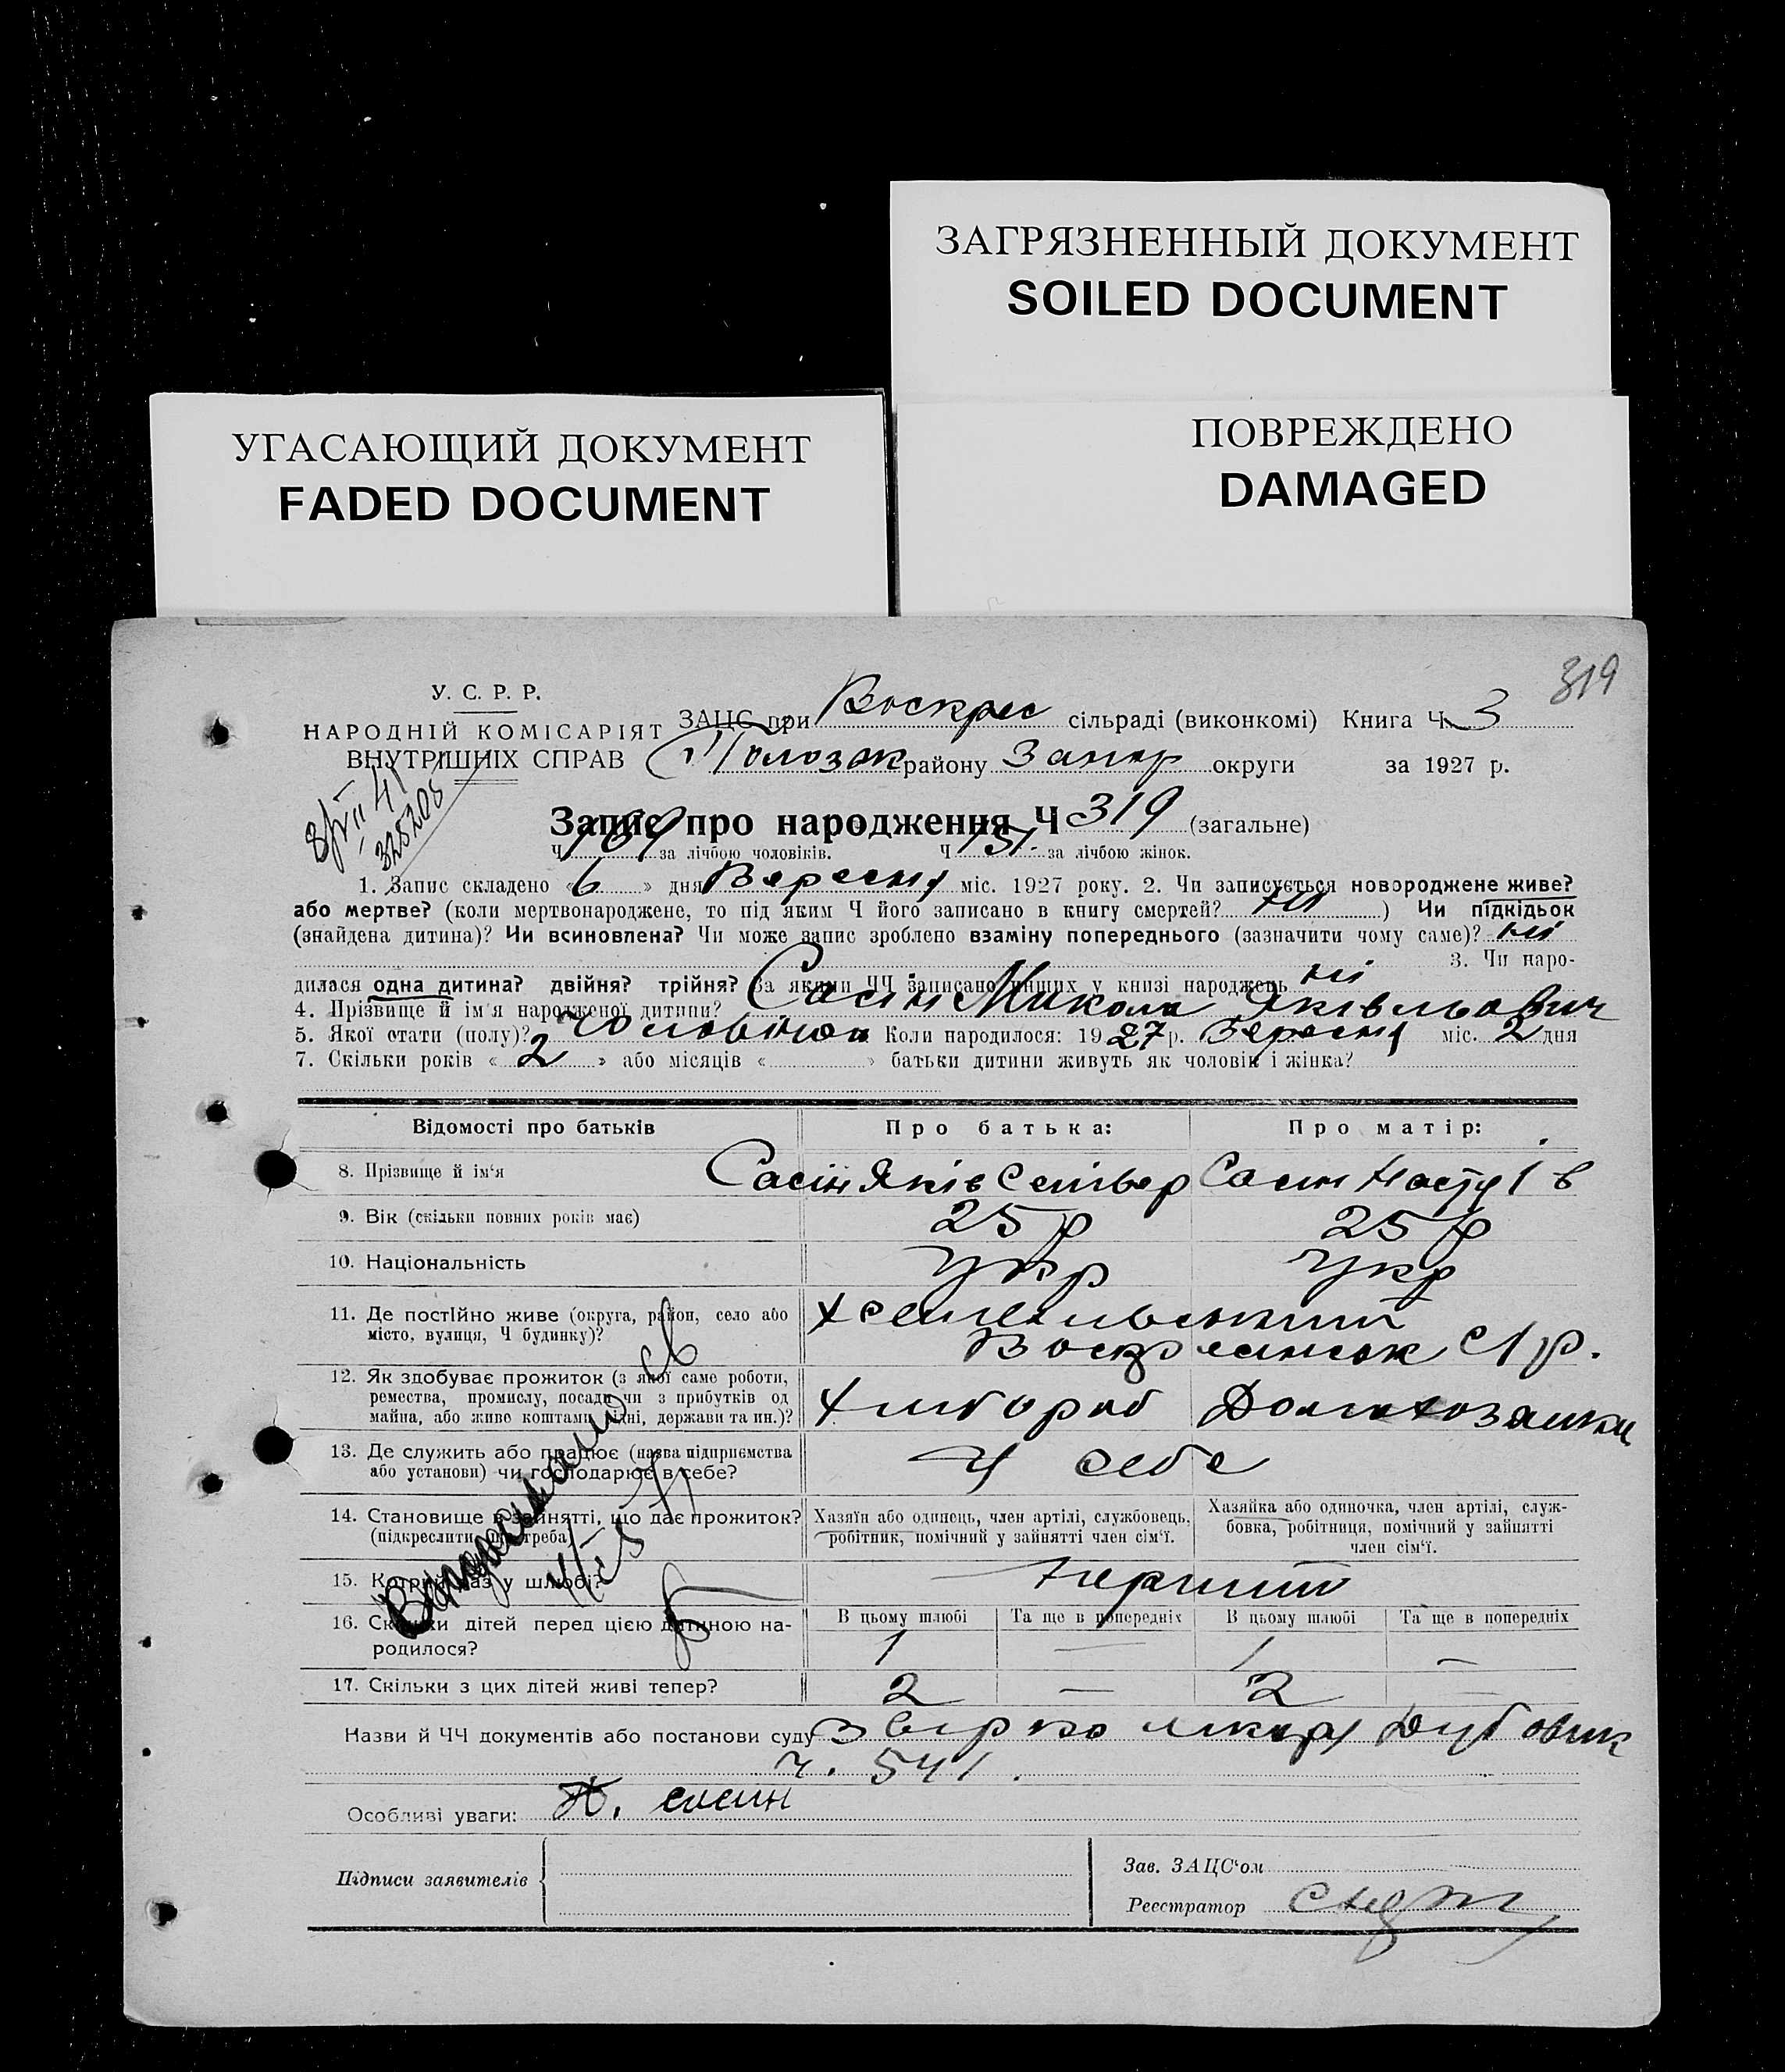 ЗАГРЯЗНЕННЫЙ ДОКУМЕНТ
SOILED DOCUMENT
УГАСАЮЩИЙ ДОКУМЕНТ
FADED DOCUMENT
ПОВРЕЖДЕНО
DAMAGED
319
У. С. Р. Р.
НАРОДНІЙ КОМІСАРІЯТ
ВНУТРІШНІХ СПРАВ
ЗАЦС при Воскрес сільраді (виконкомі) Книга Ч. 3
Полозак району Запор округи за 1927 р.
325205
Запис про народження Ч 319 (загальне)
Ч за лічбою чоловіків. Ч 151. за лічбою жінок.
1. Запис складено «6» дня Вересня міс. 1927 року. 2. Чи записується новороджене живе?
або мертве? (коли мертвонароджене, то під яким Ч його записано в книгу смертей? ) Чи підкідьок
(знайдена дитина)? Чи всиновлена? Чи може запис зроблено взаміну попереднього (зазначити чому саме)? ні
3. Чи наро-
дилася одна дитина? двійня? трійня? За якими ЧЧ записано инших у книзі народжень ні
4. Прізвище й ім'я народженої дитини? Сасін Микола Яківльович
5. Якої стати (полу)? Коли народилося: 1927 р. Вересня міс. 2 дня
7. Скільки років «2» або місяців « » батьки дитини живуть як чоловік і жінка?
Відомості про батьків Про батька: Про матір:
8. Прізвище й ім'я Сасін Яків Сасин
9. Вік (скільки повних років має) 25 р 25 р
10. Національність Укр Укр
11. Де постійно живе (округа, район, село або
місто, вулиця, Ч будинку)?
с/р.
12. Як здобуває прожиток (з якої саме роботи,
ремества, промислу, посади чи з прибутків од
майна, або живе коштами рідні, держави та ин.)? Хлібороб
13. Де служить або працює (назва підприємства
або установи) чи господарює в себе? У себе
14. Становище в зайнятті, що дає прожиток?
(підкреслити, що треба)
Хазяїн або одинець, член артілі, службовець,
робітник, помічний у зайнятті член сім'ї.
Хазяйка або одиночка, член артілі, служ-
бовка, робітниця, помічний у зайнятті
член сім'ї.
15. Котрий раз у шлюбі?
16. Скільки дітей перед цією дитиною на-
родилося?
В цьому шлюбі Та ще в попередніх В цьому шлюбі Та ще в попередніх
1 — 1 —
17. Скільки з цих дітей живі тепер? 2 — 2 —
Назви й ЧЧ документів або постанови суду Дубовик
ч. 541.
Особливі уваги:
Підписи заявителів
Зав. ЗАЦС'ом
Реєстратор